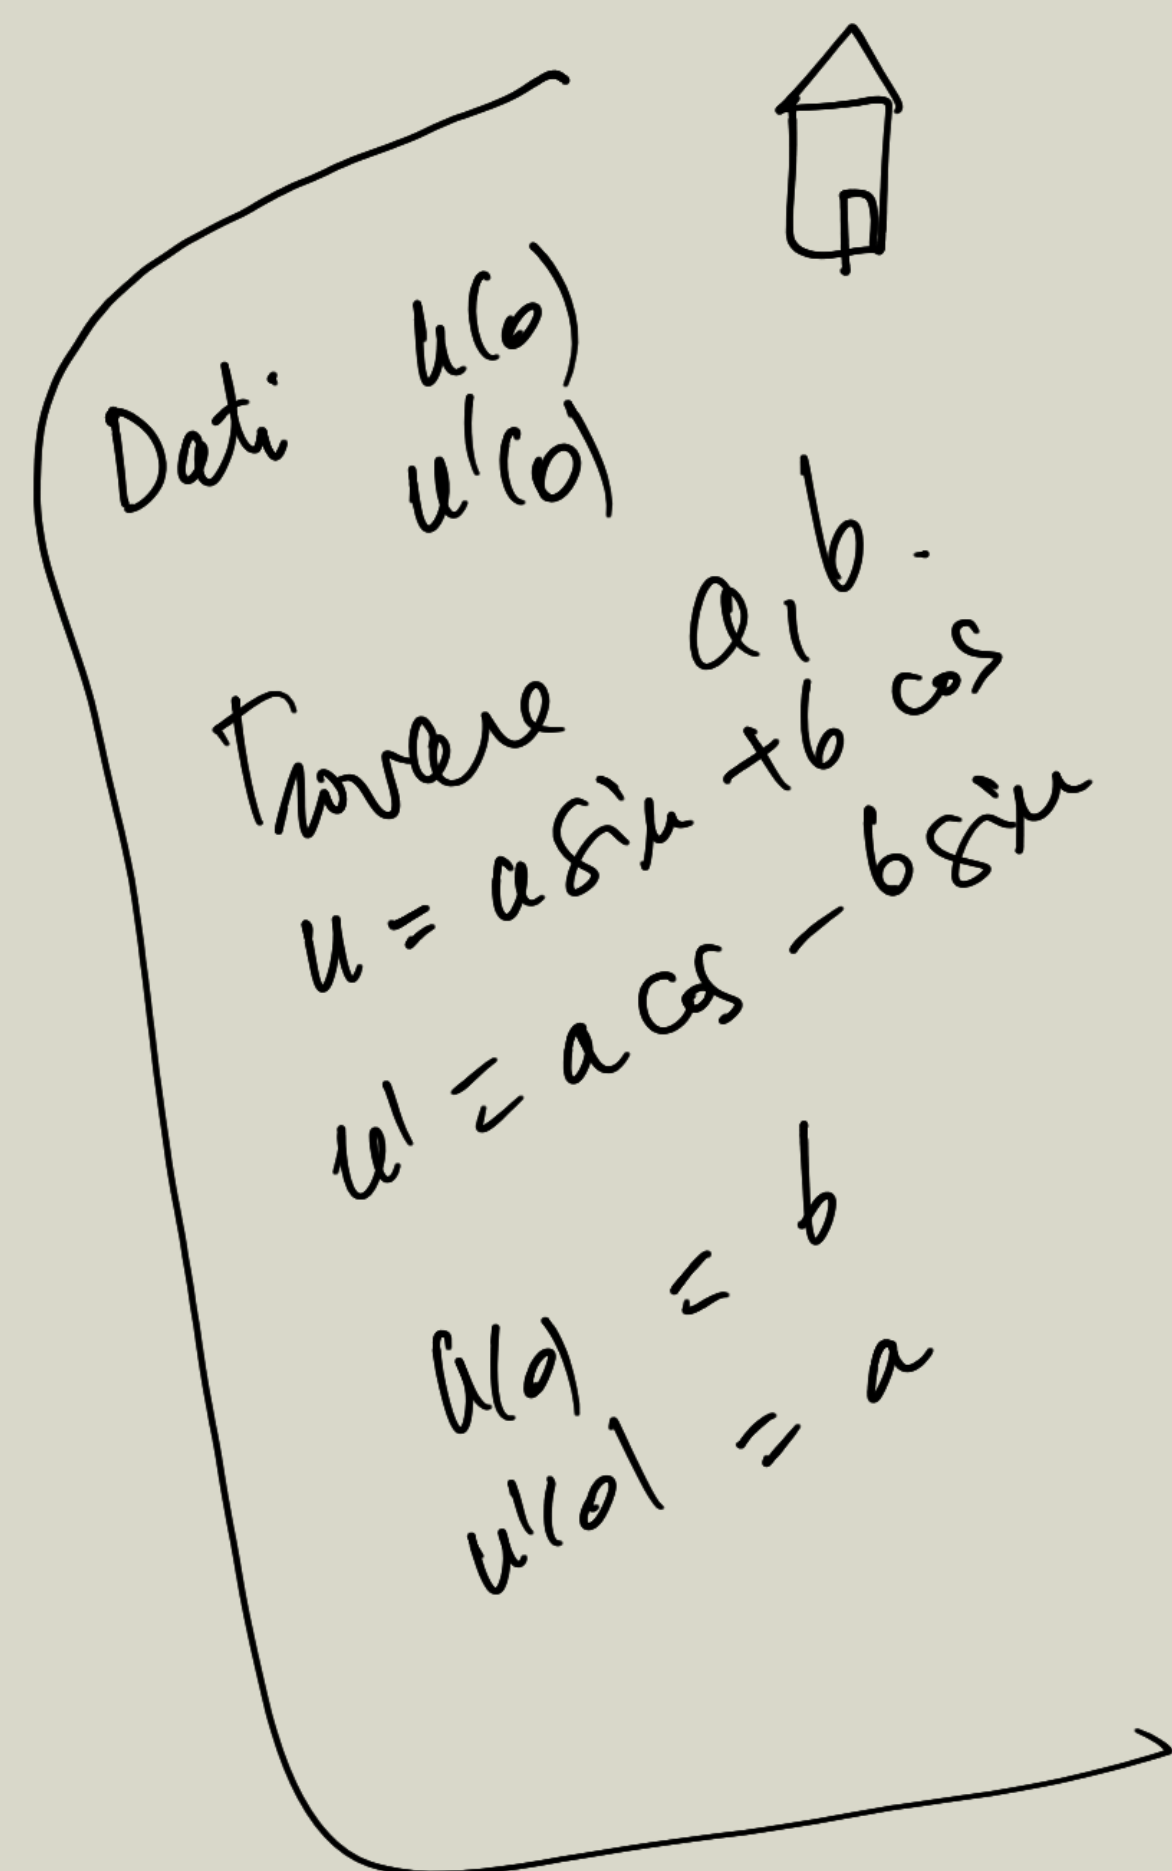 Dati u(0)
u'(0)
Trovare a, b.
u = a sin + b cos
u' = a cos - b sin
u(0) = b
u'(0) = a